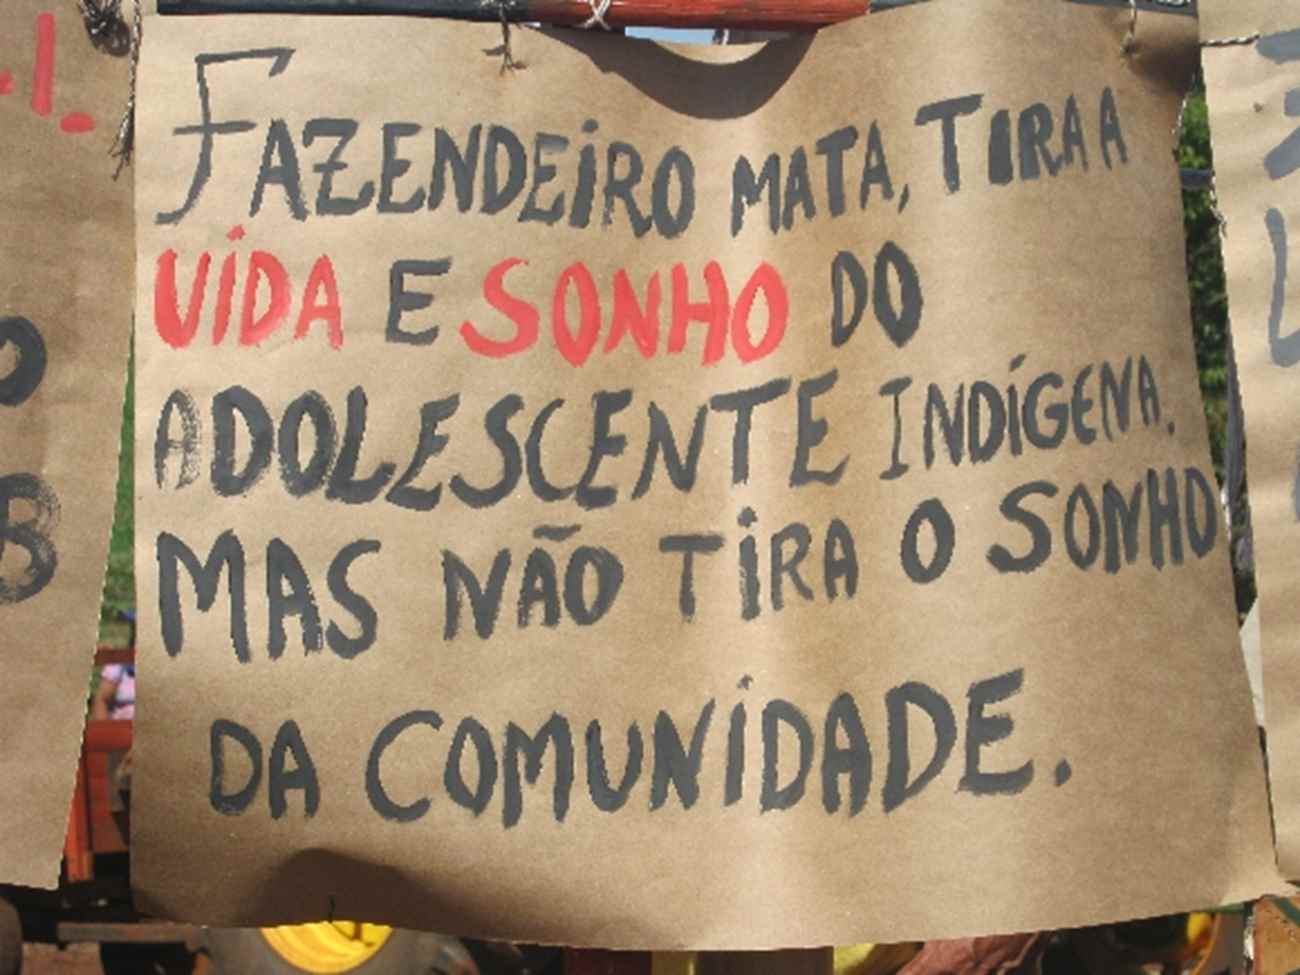 FAZENDEIRO MATA, TIRA A
VIDA E SONHO DO
ADOLESCENTE INDÍGENA.
MAS NÃO TIRA O SONHO
DA COMUNIDADE.